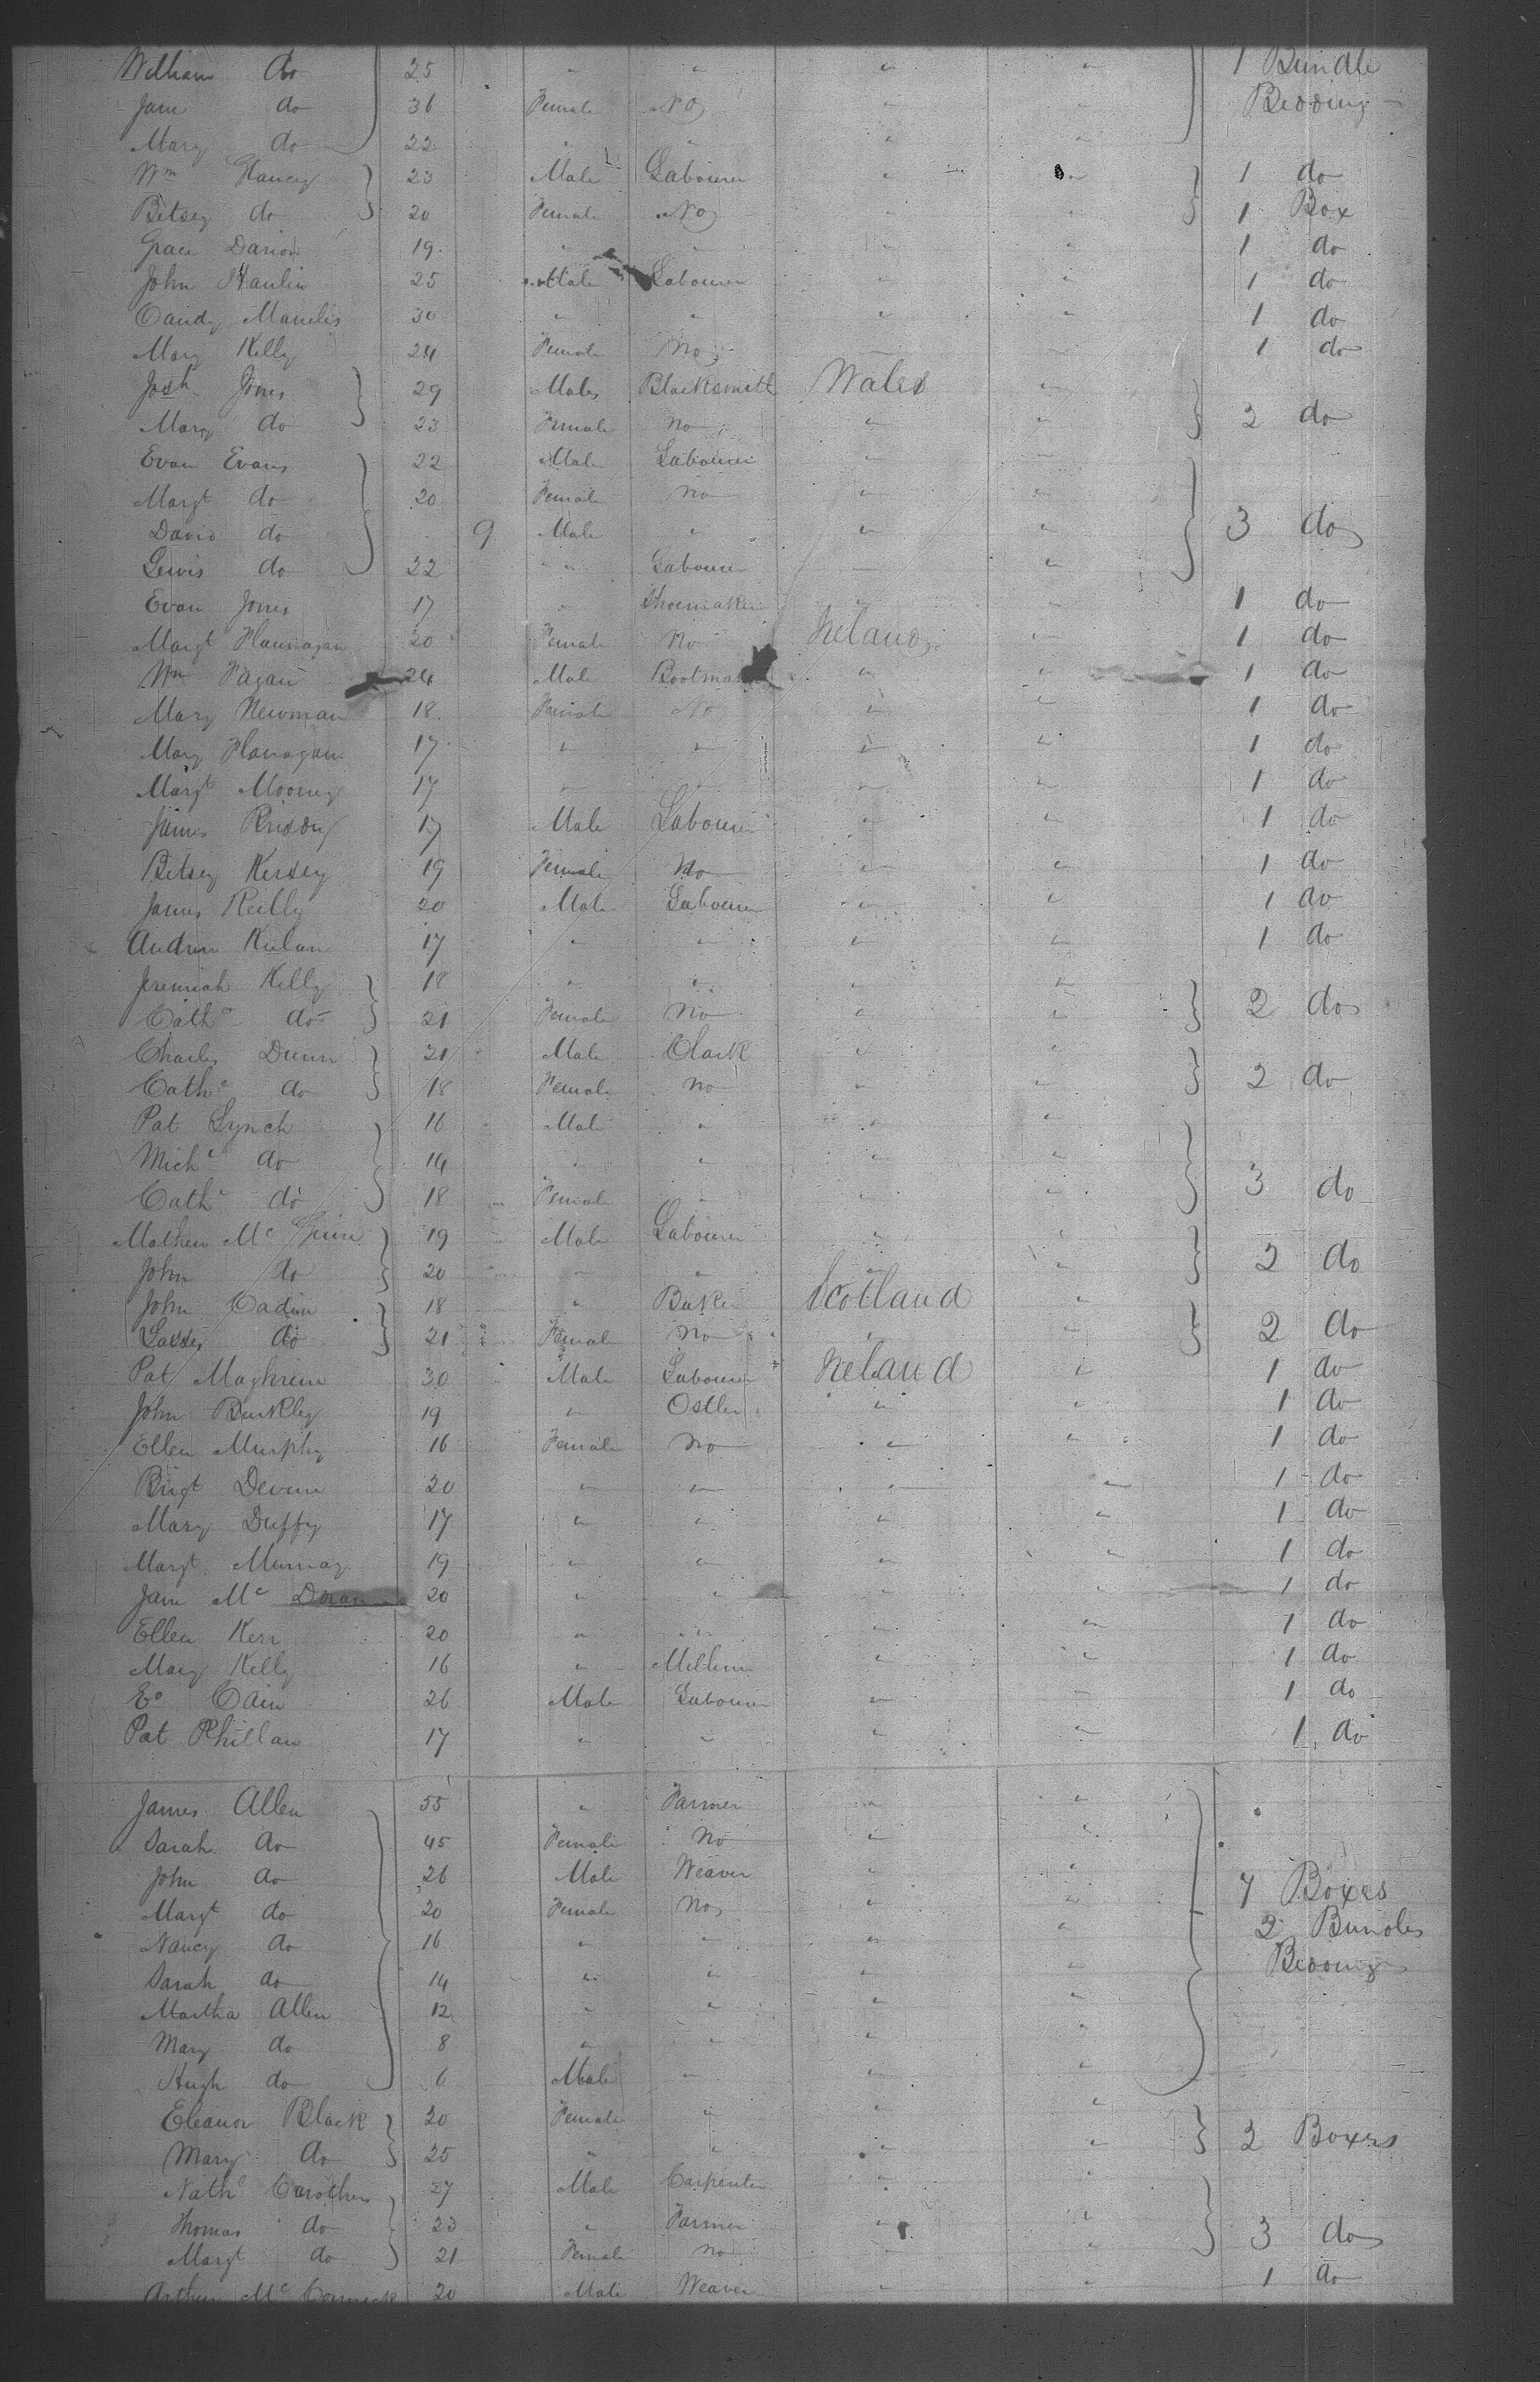 William do 25 " " " " 1 Bundle
Jane do 36 Female No " " Bedding
Mary do 22 " " " "
Wm 23 Male Labourer " " 1 do
Betsey do 20 Female No " " 1 Box
Grace 19 " " " " 1 do
John Hanlin 25 Male Labourer " " 1 do
30 " " " " 1 do
Mary Kelly 24 Female No " " 1 do
Josh Jones 29 Male Blacksmith Wales "
Mary do 23 Female No " " 2 do
Evan Evans 22 Male Labourer " "
Margt do 20 Female No " "
David do 9 Male " " " 3 do
Lewis do 22 " Labourer " "
Evan Jones 17 " Shoemaker " " 1 do
Margt Flannagan 20 Female No Ireland " 1 do
Wm Fagan 24 Male " " 1 do
Mary Newman 18 Female No " " 1 do
Mary Flanagan 17 " " " " 1 do
Margt Mooney 17 " " " " 1 do
James 17 Male Labourer " " 1 do
Betsey Kersey 19 Female No " " 1 do
James Reilly 20 Male Labourer " " 1 do
Andrew 17 " " " " 1 do
Jeremiah Kelly 18 " " " "
Cathe do 21 Female No " " 2 do
Charles Dunn 21 Male Clark " "
Cathe do 18 Female No " " 2 do
Pat Lynch 16 Male " " "
Michl do 14 " " " "
Cathe do 18 Female " " " 3 do
Mathew Mc 19 Male Labourer " "
John do 20 " " " " 2 do
John 18 " Baker Scotland "
do 21 Female No " " 2 do
Pat 30 Male Labourer Ireland " 1 do
John Burkley 19 " Ostler " " 1 do
Ellen Murphy 16 Female No " " 1 do
Brigt Devine 20 " " " " 1 do
Mary Duffy 17 " " " " 1 do
Margt Murray 19 " " " " 1 do
Jane Mc Doran 20 " " " " 1 do
Ellen Kerr 20 " " " " 1 do
Mary Kelly 16 " " " 1 do
Ed Cain 26 Male Labourer " " 1 do
Pat Phillan 17 " " " " 1 do
James Allen 55 " Farmer " "
Sarah do 45 Female No " "
John do 26 Male Weaver " " 7 Boxes
Margt do 20 Female No " " 2 Bundles
Nancy do 16 " " " " Bedding
Sarah do 14 " " " "
Martha Allen 12 " " " "
Mary do 8 " " " "
Hugh do 6 Male " " "
Eleanor Black 20 Female " " "
Mary do 25 " " " " 2 Boxes
Nathl Carothers 27 Male Carpenter " "
Thomas do 23 " Farmer " " 3 do
Margt do 21 Female No " "
Arthur Mc Cormick 20 Male Weaver " " 1 do